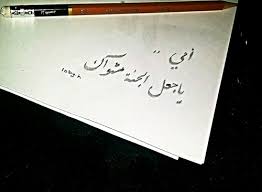 أمي ..
ياجعل الجنة مثواك